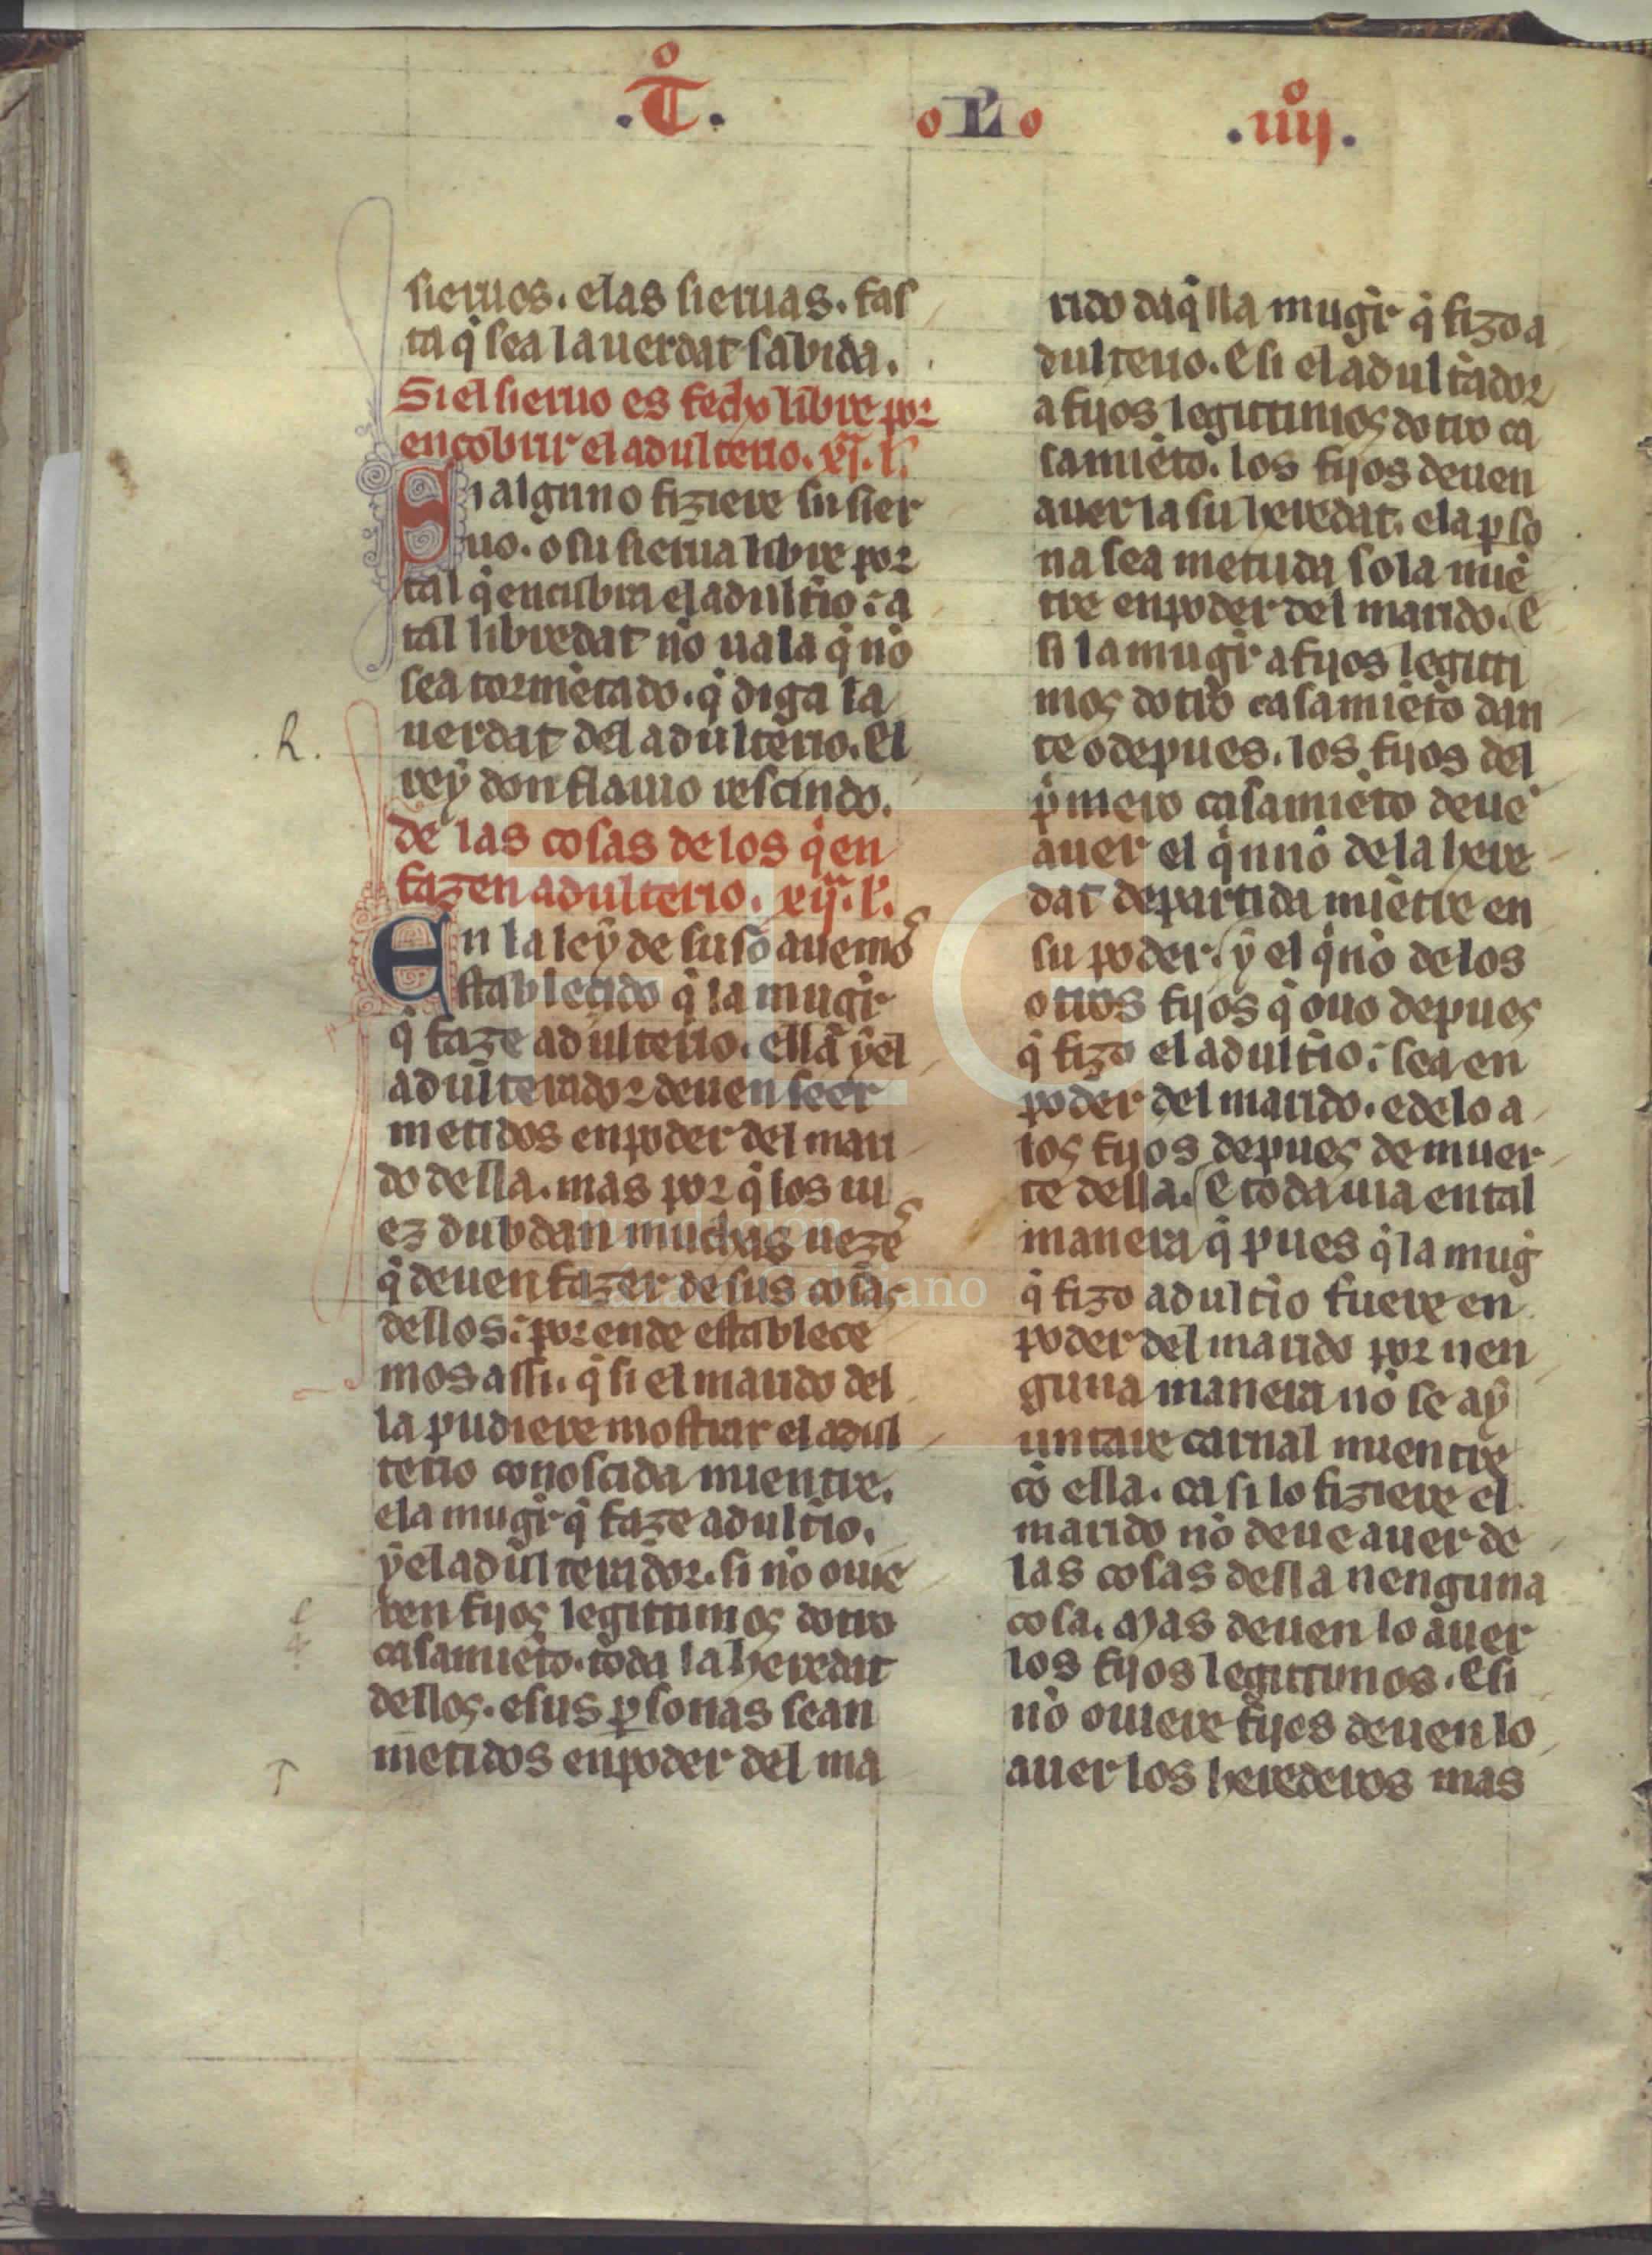 .T̊. o L o .iiij̊.
sieruos. elas sieruas. fas
ta q̇ sea la uerdat sabida.
Si el sieruo es fecho libre por
encobrir el adulterio. xj. l̕.
Si alguno fiziere su sier
uo. o su sierua libre por
tal q̇ encubra el adult̕io: a
tal libredat nō uala q̇ nō
sea tormētado. q̇ diga la
uerdat del adulterio. El
rey don flauio rescindo.
de las cosas de los q̇ en
fazen adulterio. xij. l̕.
En la leẏ de suso auemos
stablecido q̇ la mugīr
q̇ faze adulterio. ella ẏel
adulterador deuen seer
metidos enpoder del mari
do della. mas por q̇ los iu
ez dubdan muchas uezes
q̇ deuen fazer de sus cosas
dellos: por ende establece
mos assi. q̇ si el marido del
la pudiere mostrar el adul
terio conoscida mientre.
ela mugīr q̇ faze adult̕io.
ẏel adulterador. si nō ouie
ren fijos legittimos dotro
casamiēto. toda la heredat
dellos. esus ꝑsonas sean
metidos enpoder del ma
rido daq̇lla mugīr q̇ fizo a
dulterio. E si el adult̕ador
a fijos legittimos dotro ca
samiēto. los fijos deuen
auer la su heredat. ela ꝑso
na sea metuda sola miē
tre enpoder del marido. E
si la mugīr a fijos legitti
mos dotro casamiēto dan
te o depues. los fijos del
p̕mero casamiēto deuē
auer el q̇nnō dela here
dat departida miētre en
su poder. ẏ el q̇nō delos
otros fijos q̇ ouo depues
q̇ fizo el adult̕io: sea en
poder del marido. edelo a
los fijos depues de muer
te della. E toda uia en tal
manera q̇ pues q̇ la mug̕
q̇ fizo adult̕io fuere en
poder del marido por nen
guna manera nō se aẏ
untare carnal mientre
cō ella. ca si lo fiziere el
marido nō deue auer de
las cosas della nenguna
cosa. Mas deuen lo auer
los fijos legittimos. E si
nō ouiere fijos deuen lo
auer los herederos mas
.R.
FLG
Fundación
Lázaro Galdiano